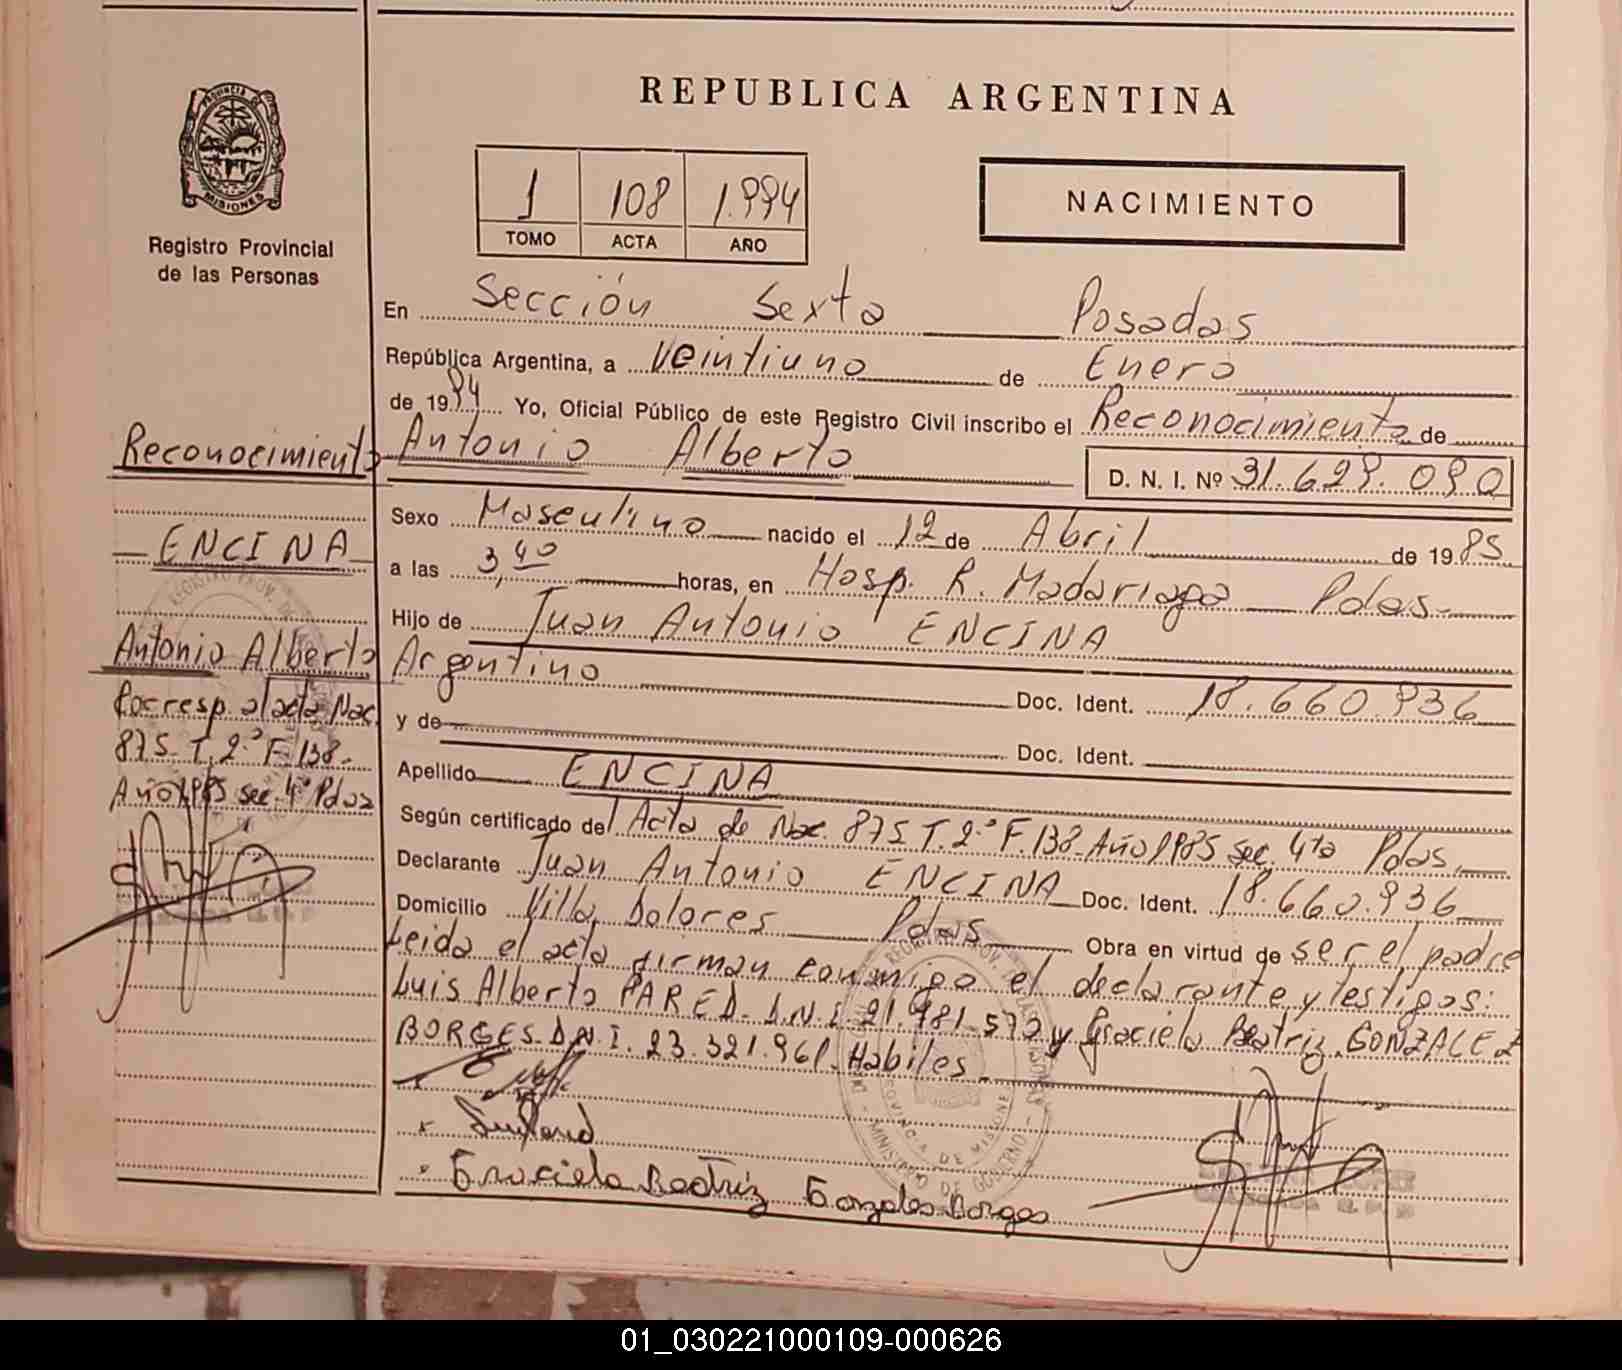 PROVINCIA DE
MISIONES
Registro Provincial
de las Personas
REPUBLICA ARGENTINA
1 108 1.994
TOMO ACTA AÑO
NACIMIENTO
En Sección Sexta Posadas
República Argentina, a Veintiuno de Enero
de 1994 Yo, Oficial Público de este Registro Civil inscribo el Reconocimiento de
Antonio Alberto D. N. I. Nº 31.629.090
Sexo Masculino nacido el 12 de Abril de 1985
a las 3,40 horas, en Hosp. R. Madariaga Pdas.
Hijo de Juan Antonio ENCINA
Argentino Doc. Ident. 18.660.936
y de Doc. Ident.
Apellido ENCINA
Según certificado del Acta de Nac. 875 T. 2º F. 138 Año 1985 sec. 4ta Pdas.
Declarante Juan Antonio ENCINA Doc. Ident. 18.660.936
Domicilio Villa Dolores Pdas Obra en virtud de ser el padre
Leida el acta firman conmigo el declarante y testigos:
Luis Alberto PARED. D.N.I. 21.981.572 y Graciela Beatriz GONZALEZ
BORGES D.N.I. 23.321.961. Habiles
Graciela Beatriz Gonzales Borges
Reconocimiento
ENCINA
Antonio Alberto
Corresp. al acta Nac.
875 T. 2º F. 138.
Año 1985 sec. 4º Pdas
01_030221000109-000626